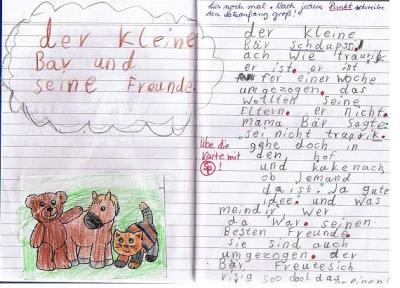 der kleine
Bär und
seine Freunde
Lies noch mal. Nach jedem Punkt schreibe
den Satzanfang groß!
der kleine
Bär schdupss.
ach wie traurik
er ist. er ist
for einer woche
umgezogen. das
wollten seine
Eltern. er nicht.
mama Bär sagte:
sei nicht traurik.
gehe doch in
den hof
und kuke nach
ob jemand
da ist. Ja gute
idee. und was
meind ir wer
da War. seinen
Besten Freunde.
sie sind auch
umgezogen. der
Bär Freute sich
risig soo dol das
Übe die
Karte mit
Sp